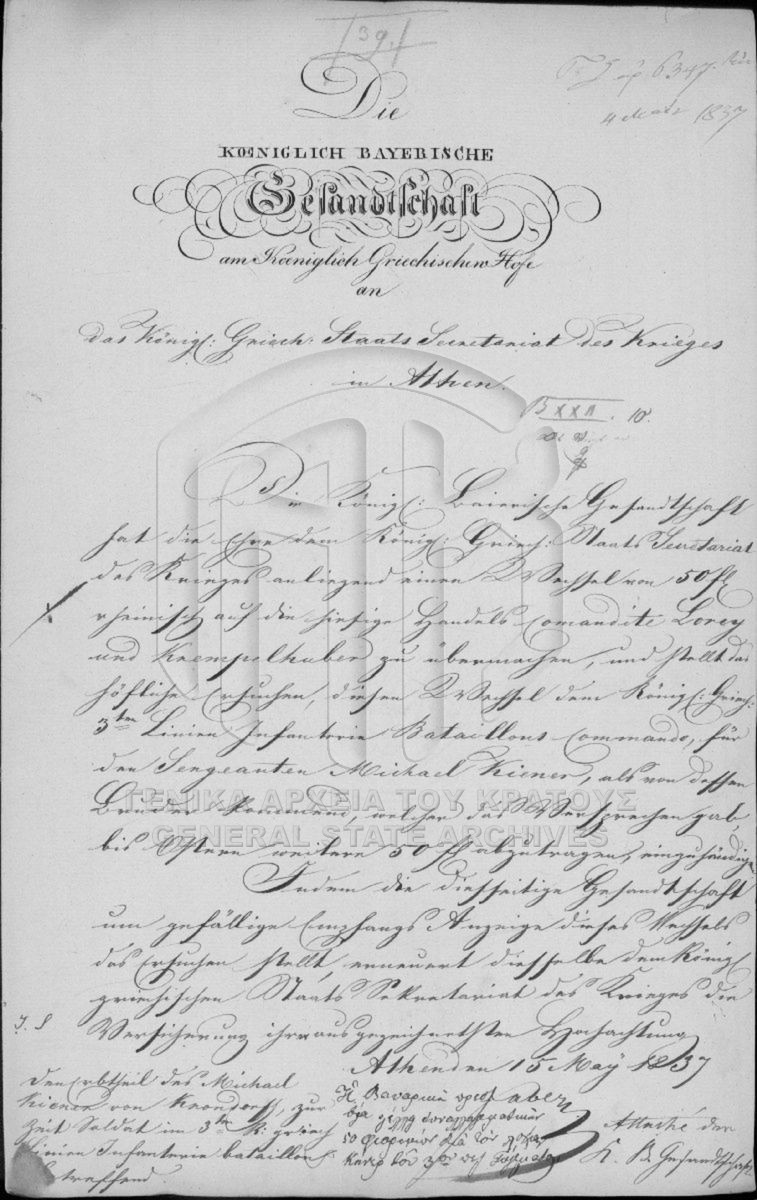 39
6347
4 1837
Die
KŒNIGLICH BAYERISCHE
Gesandtschaft
am Kœniglich Griechischen Hofe
an
das Königl: Griech: Staats Secretariat des Krieges
in Athen.
B XXII . 10.
Die Königl: Baierische Gesandtschaft
hat die Ehre dem Königl: Griech: Staats Secretariat
des Krieges anliegend einen Wechsel von 50 fl
rheinisch auf die hiesige Handels Comandite Lorey
und Krempelhuber zu übermachen, und stellt das
höfliche Ersuchen, diesen Wechsel dem Königl: Griech:
3ten Linien Infanterie Bataillons Commando, für
den Sergeanten Michael Kiener, als von dessen
Bruder kommend, welcher das Versprechen gab,
bis Ostern weitere 50 fl abzutragen, einzuhändigen
Indem die diesseitige Gesandtschaft
um gefällige Empfangs Anzeige dieses Wechsels
das Ersuchen stellt, erneuert dieselbe dem Königl
griechischen Staats Sekretariat des Krieges die
Versicherung ihrer ausgezeichnetsten Hochachtung
Athen den 15 May 1837
den Erbtheil des Michael
Kiener von Krondorf, zur
Zeit Soldat im 3ten K: griech
Linien Infanterie bataillon
betreffend.
Ἡ Βαυαρικὴ πρεσβ
50 φιορινίων διὰ τὸν λοχίαν
Κίνερ τοῦ 3ου
Attaché der
K. B. Gesandtschaft
ΓΕΝΙΚΑ ΑΡΧΕΙΑ ΤΟΥ ΚΡΑΤΟΥΣ
GENERAL STATE ARCHIVES